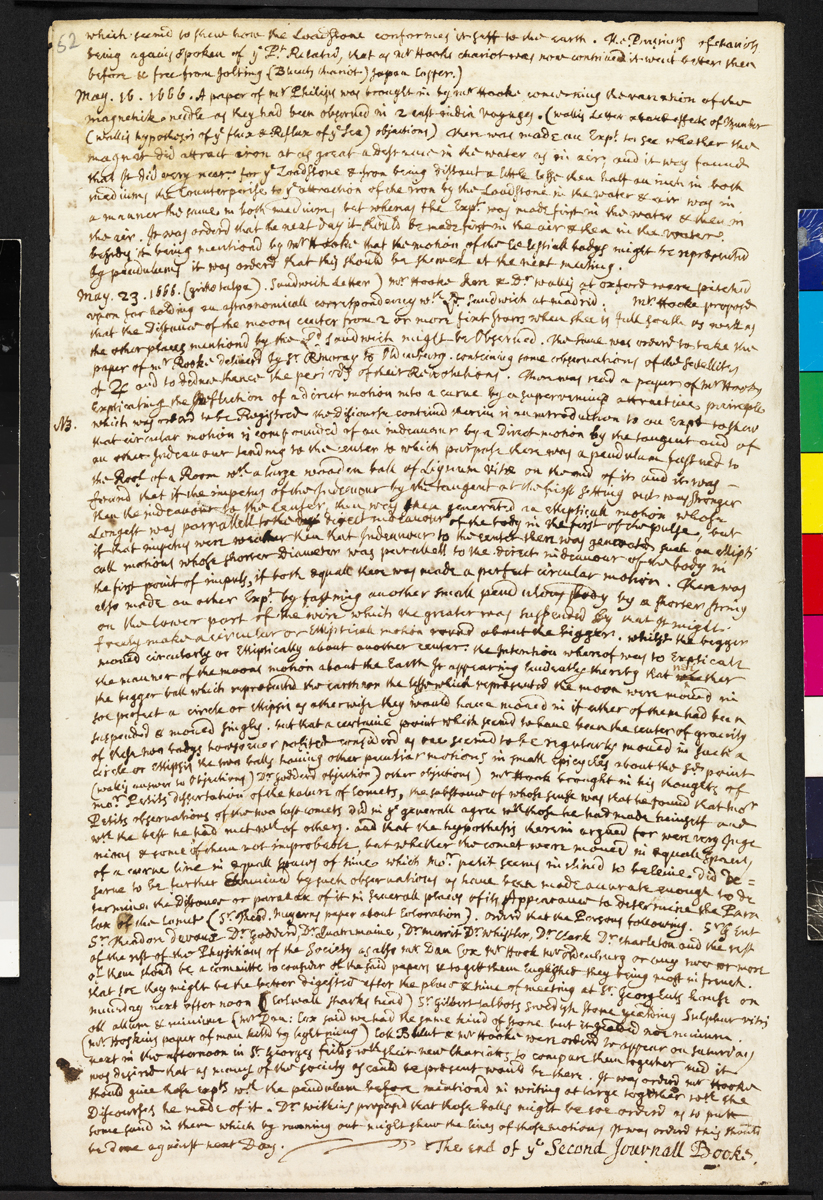 52
which seemd to shew how the Loadstone conformes it self to the earth. The busines of chariots
being again spoken of ye Pt. Relatd, that as mr Hooks chariot was now contrived it went better then
before & free from Jolting (Blunts chariot) Japan Easter.)
May. 16. 1666. A paper of mr Philips was brought in by mr Hooke concerning the variation of the
magnetick needle as they had been observed in 2 east india voyages. (wallis Letter about effects of thunder
(wallis hypothesis of ye flux & Reflux of ye Sea) objections) there was made an Expt. to see whether the
magnet did attract iron at as great a distance in the water as in aer, and it was found
that it did very near. for ye Loadstone & Iron being distant a little lesse then half an inch in both
mediums the Counterpoise to ye attraction of the iron by the Loadstone in the water & air was in
a manner the same in both mediums, but wheras the Expt. was made first in the water & then in
the air. It was orderd that the next day it should be made first in the air & then in the water.
besides it being mentioned by mr Hooke that the motion of the Celestiall bodys might be represented
by pendulums it was orderd that this should be shewen at the next meeting.
May. 23. 1666. (Sandwich Letter) mr Hooke here & Dr. wallis at oxford were pitched
upon for holding an astronomicall correspondency wth Ld Sandwich at madrid: mr Hooke proposd
that the Distance of the moons center from 2 or more fixt starrs when shee is full south as well as
the other places mentiond by the Ld. Sandwich might be Observed. The same was orderd to take the
paper of mr Rooke deliverd by Sr. R murray to Oldenburg. containing some observations of the satellits
of ♃ and to deduce thence the periods of their Revolutions. There was read a paper of mr Hooks
Explicating the Inflection of a direct motion into a curve by a supervening attractive principle
NB. which was orderd to be Registred the discourse contained therein is an introduction to an Expt. to shew
that circular motion is compounded of an indeavour by a Direct motion by the tangent and of
an other Indeavour tending to the center to which purpose there was a pendulum fastned to
the Roof of a Room wth a large wooden ball of Lignum vitæ on the end of it and it was
found that if the impetus of the Indeavour by the tangent at the first setting out was stronger
then the indeavour to the center, then was then generated an Elliptical motion whose
Longest was parrallell to the direct indeavour of the body in the first of the pulse, but
if that impetus were weaker then that Indeavour to the center there was generated such an Ellipti
call motions whose shorter Diameter was parallell to the direct indeavour of the body in
the first point of impuls, if both equall there was made a perfect circular motion. There was
also made an other Expt. by fastning another small pendulous body by a shorter string
on the lower part of the wire which the greater was suspended by that it might
freely make a circular or Elliptical motion round about the bigger. whilst the bigger
moved circularly or Elliptically about another center. the Intention whereof was to Explicate
the manner of the moons motion about the Earth It appearing Evidently thereby that neither
the bigger ball which represented the earth nor the lesse which represented the moon were moved in
soe perfect a circle or Ellipsis as otherwise they would have moved in if either of them had been
suspended & moved singly. but that a certaine point which seemd to have been the center of gravity
of these two bodys howsoever posited considerd as one seemd to be regularly moved in such a
circle or Ellipsis the two balls having other peculiar motions in small Epicycles about the sd. point
(wallis answer to objections) Dr. Goddard objection) other objections) mr Hook brought in his thoughts of
mor. Petits dissertation of the nature of Comets, the substance of whose sense was that he found that mor
Petits observations of the two last comets did in ye generall agree wth those he had made himself and
wth the best he had met wth of others. and that the hypothesis therein argued for were very Inge
nious & some of them not improbable, but whether the comet were moved in equall spaces
of a curve line in equall spaces of time which Mor. petit seems inclined to beleive. did De=
serve to be further Examined by such observations as have been made accurate enough to de
termine the distance or paralax of it in severall places of its Appearance to determine the Para
lax of the Comet (Sr. Theod. Mayerns paper about Coloration). Orderd that the Persons following. Sr G Ent
Dr. Goddard Dr. Quatermaine, Dr. Merrit Dr. Whistler, Dr. Clark Dr. Charleton and the rest
of the rest of the Physitians of the Society as also mr Dan Cox mr Hook mr Oldenburg or any two or more
of them should be a committe to consider of the said papers & to gett them Englished they being most in french.
that soe they might be the better digested after the place & time of meeting at Sr. Georg Ents house on
munday next after noon (Colwall sharks head) Sr. Gilbert talbots Swedish stone yeelding Sulphur vitri
oll allum & minium (mr Dan: Cox said we had the same kind of stone but it yeelded noe minium
(mr Hoskins paper of man killd by lightning) Coll Blunt & mr Hooke were orderd to appear on saturday
next in the afternoon in St. Georges fields wth their new chariots to compare them together and it
was desired that as many of the society as could be present would be there. It was orderd mr Hooke
should give those expts. wth the pendulum before mentioned in writing at large together with the
Discourses he made of it. Dr. wilkins proposd that those balls might be soe orderd as to putt
some sand in them which by running out might shew the lines of those motions It was orderd this should
be done against next Day. The end of ye Second Journall Booke.